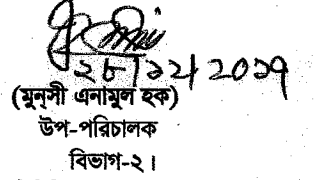 ২৮/১২/২০১৭
(মুন্সী এনামুল হক)
উপ-পরিচালক
বিভাগ-২।